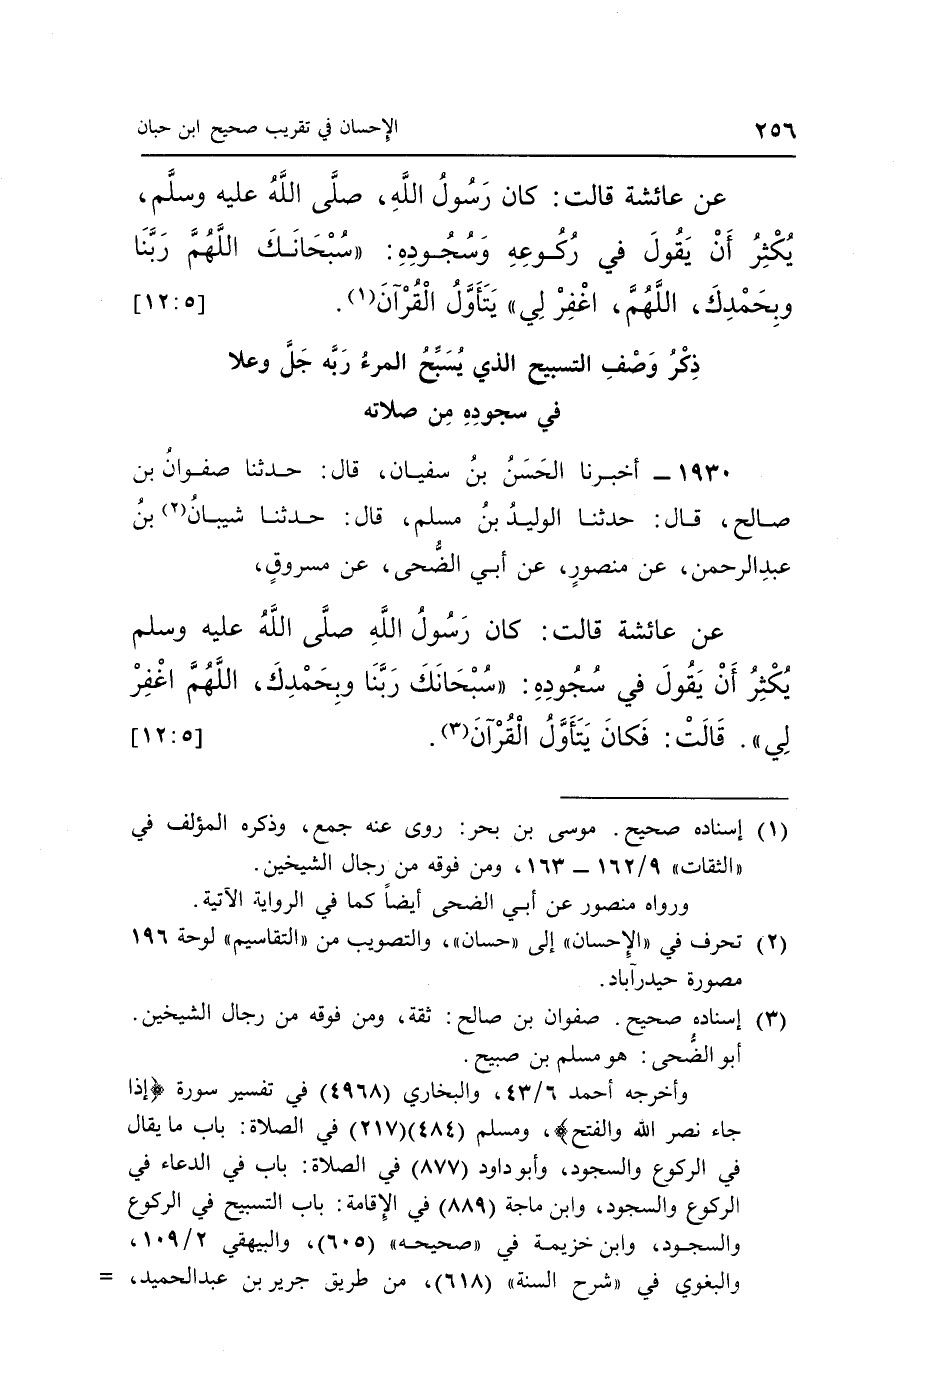 ٢٥٦ الإحسان في تقريب صحيح ابن حبان
عن عائشة قالت: كان رَسُولُ اللَّهِ، صلَّى اللَّهُ عليه وسلَّم،
يُكْثِرُ أَنْ يَقُولَ في رُكُوعِهِ وَسُجُودِهِ: «سُبْحَانَكَ اللَّهُمَّ رَبَّنَا
وبِحَمْدِكَ، اللَّهُمَّ، اغْفِرْ لِي» يَتَأَوَّلُ الْقُرْآنَ(١). [١٢:٥]
ذِكْرُ وَصْفِ التسبيح الذي يُسَبِّحُ المرءُ رَبَّه جَلَّ وعلا
في سجودِهِ مِن صلاته
١٩٣٠ ـ أخبرنا الحَسَنُ بنُ سفيان، قال: حدثنا صفوانُ بن
صالح، قال: حدثنا الوليدُ بنُ مسلم، قال: حدثنا شيبانُ(٢) بنُ
عبدِالرحمن، عن منصورٍ، عن أبي الضُّحى، عن مسروقٍ،
عن عائشة قالت: كان رَسُولُ اللَّهِ صلَّى اللَّهُ عليه وسلم
يُكْثِرُ أَنْ يَقُولَ في سُجُودِهِ: «سُبْحَانَكَ رَبَّنَا وبِحَمْدِكَ، اللَّهُمَّ اغْفِرْ
لِي». قَالَتْ: فَكانَ يَتَأَوَّلُ الْقُرْآنَ(٣). [١٢:٥]
(١) إسناده صحيح. موسى بن بحر: روى عنه جمع، وذكره المؤلف في
«الثقات» ١٦٢/٩ ـ ١٦٣، ومن فوقه من رجال الشيخين.
ورواه منصور عن أبي الضحى أيضاً كما في الرواية الآتية.
(٢) تحرف في «الإحسان» إلى «حسان»، والتصويب من «التقاسيم» لوحة ١٩٦
مصورة حيدرآباد.
(٣) إسناده صحيح. صفوان بن صالح: ثقة، ومن فوقه من رجال الشيخين.
أبو الضُّحى: هو مسلم بن صبيح.
وأخرجه أحمد ٤٣/٦، والبخاري (٤٩٦٨) في تفسير سورة ﴿إذا
جاء نصر الله والفتح﴾، ومسلم (٤٨٤)(٢١٧) في الصلاة: باب ما يقال
في الركوع والسجود، وأبو داود (٨٧٧) في الصلاة: باب في الدعاء في
الركوع والسجود، وابن ماجة (٨٨٩) في الإقامة: باب التسبيح في الركوع
والسجود، وابن خزيمة في «صحيحه» (٦٠٥)، والبيهقي ١٠٩/٢،
والبغوي في «شرح السنة» (٦١٨)، من طريق جرير بن عبدالحميد، =